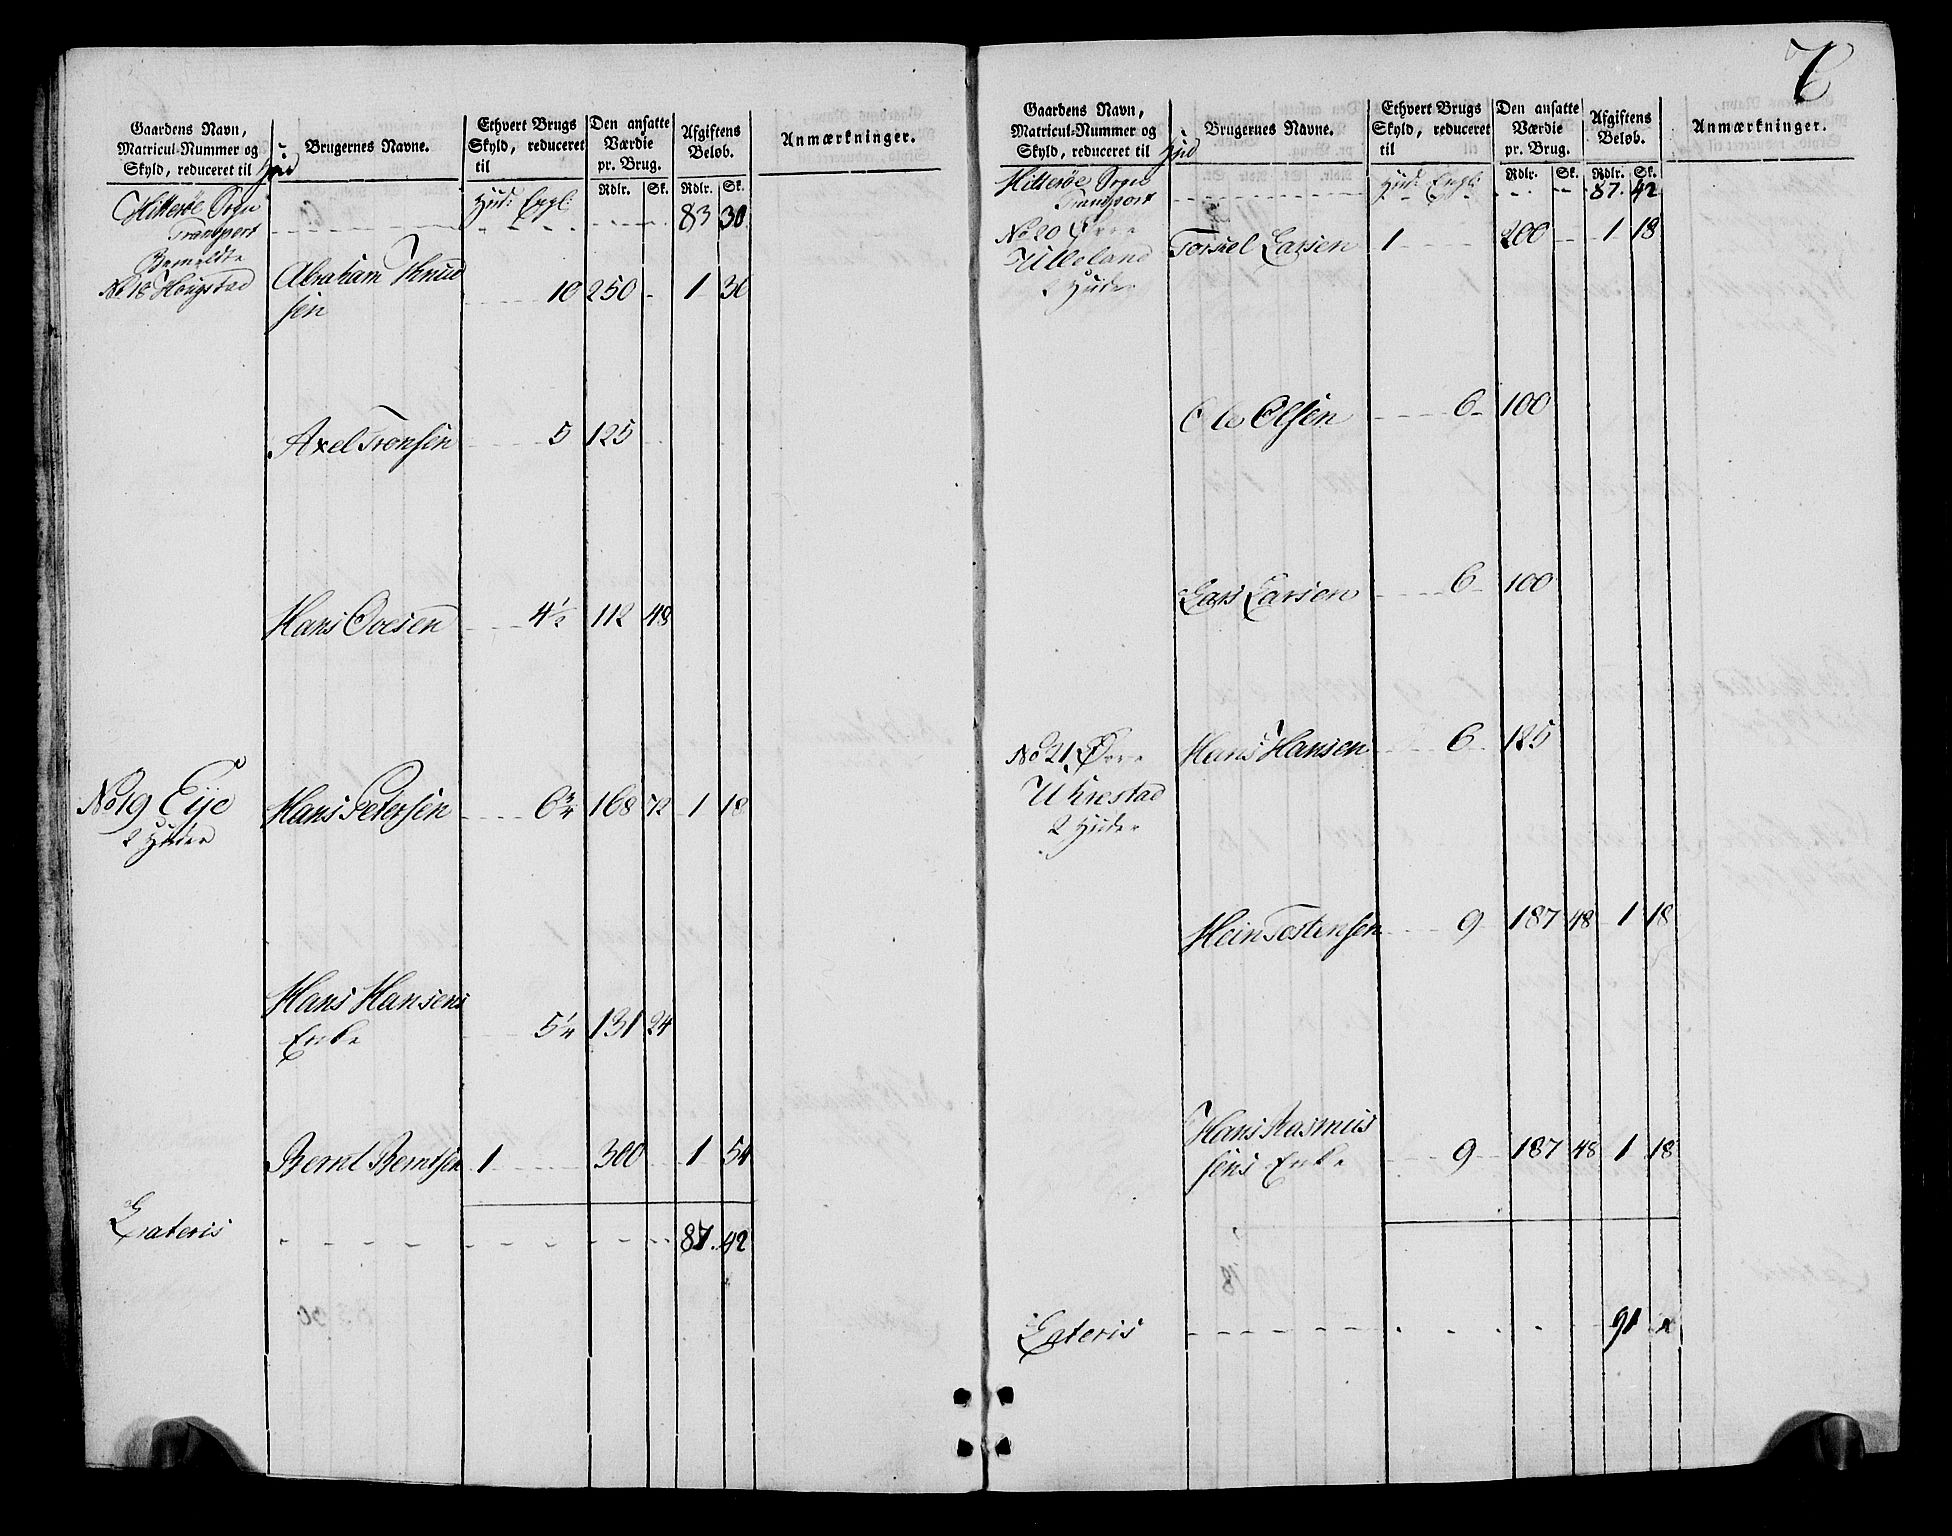 Gaardens Navn, Matricul-Nummer og Skyld, reduceret til Hud
Brugernes Navne.
Ethvert Brugs Skyld, reduceret til
Den ansatte Værdie pr. Brug.
Afgiftens Beløb.
Anmærkninger.
Rdlr. Sk. Rdlr. Sk.
Hitterøe Sogn Hud: Engl:
Transport 83 30
Bemeldte
No 18 Hougstad Abraham Knud 10 250 1 30
sen
Axel Tronsen 5 125
Hans Ovesen 4½ 112 48
No 19 Eije Hans Petersen 6¾ 168 72 1 18
2 Huder
Hans Hansens
Enke 5¼ 131 24
Bernt Berntsen 1 300 1 54
Lateris 87 42
7
Gaardens Navn, Matricul-Nummer og Skyld, reduceret til Hud
Brugernes Navne.
Ethvert Brugs Skyld, reduceret til
Den ansatte Værdie pr. Brug.
Afgiftens Beløb.
Anmærkninger.
Rdlr. Sk. Rdlr. Sk.
Hitterøe Sogn Hud: Engl: 87. 42
Transport
No 20 Øvre Torkel Larsen 1 200 1 18
Ulleland
2 Huder
Ole Olsen 6 100
Lars Larsen 6 100
No 21 Øvre Hans Hansen 6 125
Uhrestad
2 Huder
Hein Tostensen 9 187 48 1 18
Hans Rasmus
sens Enke 9 187 48 1 18
Lateris 91